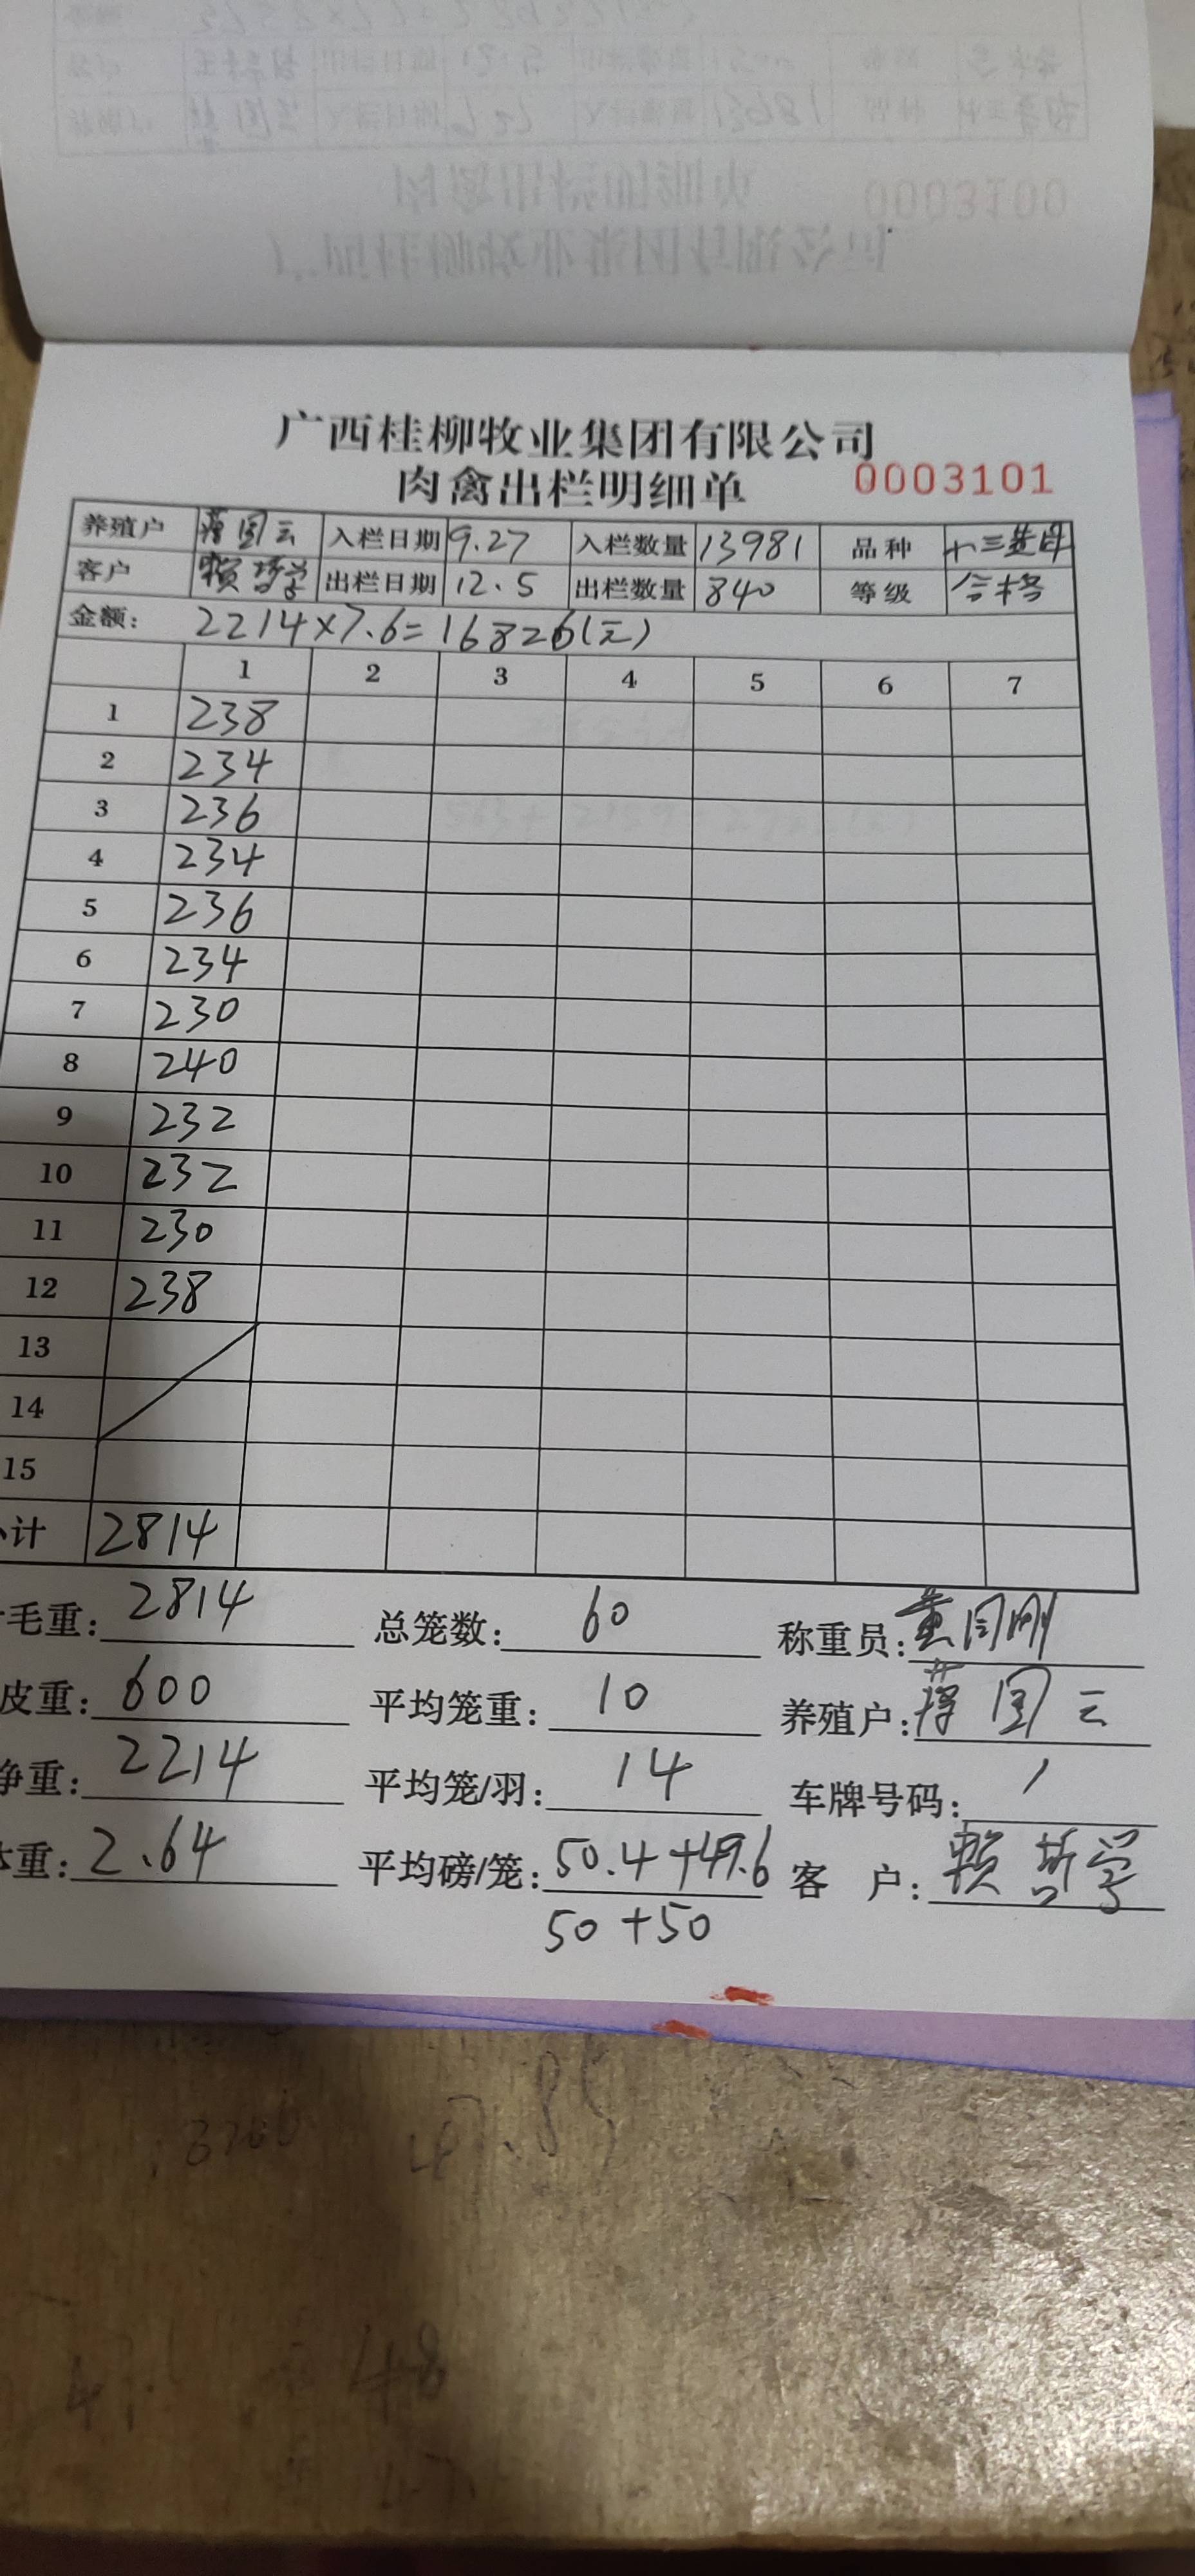 0003100
广西桂柳牧业集团有限公司
肉禽出栏明细单 0003101
养殖户 蒋国云 入栏日期 9.27 入栏数量 13981 品种
客户 赖哲学 出栏日期 12.5 出栏数量 840 等级 合格
金额: 2214×7.6=16826(元)
1 2 3 4 5 6 7
1 238
2 234
3 236
4 234
5 236
6 234
7 230
8 240
9 232
10 232
11 230
12 238
13
14
15
计 2814
毛重: 2814 总笼数: 60 称重员:
皮重: 600 平均笼重: 10 养殖户: 蒋国云
净重: 2214 平均笼/羽: 14 车牌号码: /
体重: 2.64 平均磅/笼: 50.4+49.6 客 户: 赖哲学
50+50
48